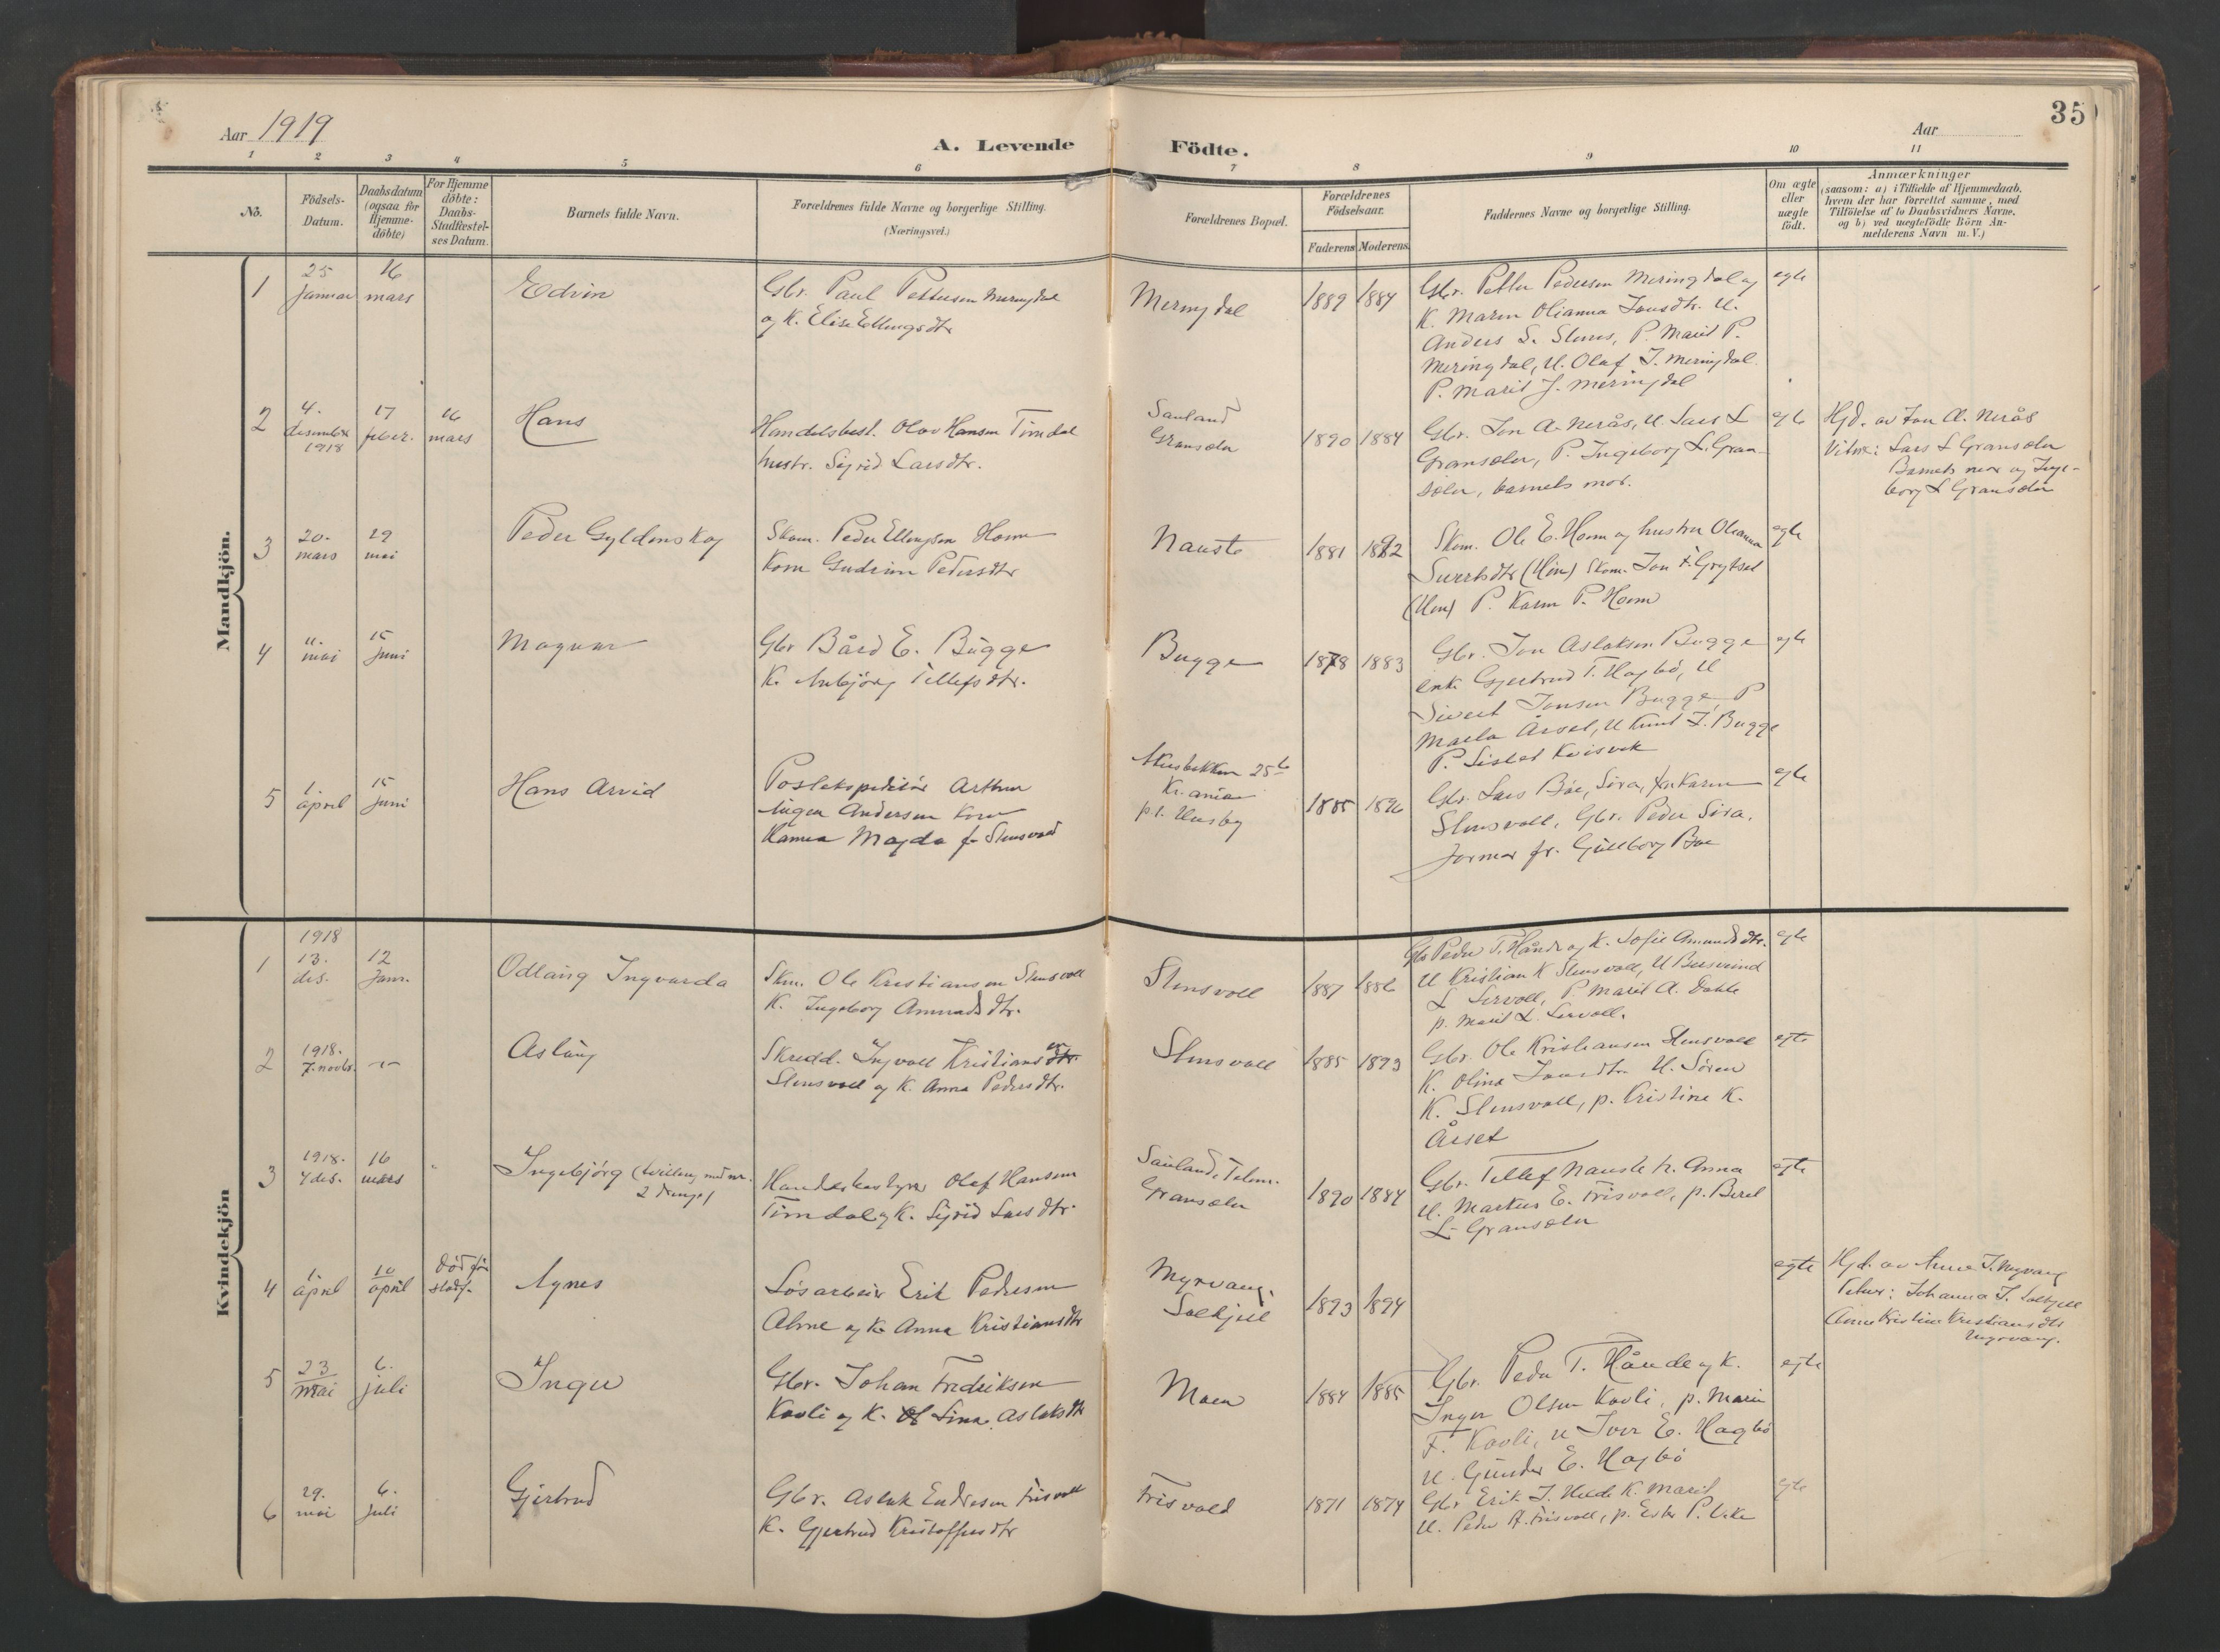 Aar 1919
A. Levende Födte.
Aar
35
1 2 3 4 5 6 7 8 9 10 11
No.
Födsels-Datum.
Daabsdatum (ogsaa for Hjemme-döbte)
For Hjemme döbte: Daabs-Stadfestel-ses Datum.
Barnets fulde Navn.
Forældrenes fulde Navne og borgerlige Stilling. (Næringsvei.)
Forældrenes Bopæl.
Forældrenes Födselsaar.
Faderens Moderens
Faddernes Navne og borgerlige Stilling.
Om ægte eller uægte födt.
Anmærkninger
(saasom: a) i Tilfælde af Hjemmedaab,
hvem der har forrettet samme, med
Tilföielse af to Daabsvidners Navne,
og b) ved uegtefödte Börn An-
melderens Navn m. V.)
Mandkjön.
1
25 januar
16 mars
Edvin
Gbr. Paul Pettersen Meringdal
og K. Elise Ellingsdtr
Meringdal
1889 1884
Gbr. Petter Pedersen Meringdal og
K. Maren Olianna Jonsdtr. U.
Anders S. , P. Marit P.
Meringdal, U. Olaf J. Meringdal.
P. Marit J. Meringdal
egte
2
4. desember 1918
17 febr.
16 mars
Hans
Handelsbest. Olav Hansen Timdal
hustr. Sigrid Larsdtr.
Sauland
Gransøler
1890 1884
Gbr. Jon A. Nerås, U. Lars L
Gransøler, P. Ingeborg L. Gran-
søler, barnets mor.
egte
Hjd. av Jon A. Nerås
Vitne: Lars L Gransøler
Barnets mor og Inge-
borg L Gransøler
3
20. mars
29 mai
Peder Gyldenskog
Skom. Peder Ellingsen Horm
Kone Gudrun Pedersdtr
Nauste
1881 1892
Skom. Ole E. Horm og hustru Oleanna
Sivertsdtr (Uen) Skom. Jon F. Grytset
(Uen) P. Karen P. Horm
egte
4
11. mai
15 juni
Magnar
Gbr Bård E. Bugge
K. Anbjörg Tillefsdtr.
Bugge
1878 1883
Gbr. Jon Aslaksen Bugge
enke Gjertrud T. Hagbö, U
Sivert Jonsen Bugge, P
Marta Årset, U Knut J. Bugge
P. Kvisvik
egte
5
1. april
15 juni
Hans Arvid
Postekspeditör Arthur
Andersen Kone
Hanna Magda f. Stensvold
25 b
Kr.ania
p.t. Husby
1885 1896
Gbr. Lars Böe, Sira, Karen
Stensvoll, Gbr. Peder Sira.
Jormor fr. Gullborg Boe
egte
Kvindekjön
1
1918 13. des.
12 Janr.
Odlaug Ingvarda
Skm. Ole Kristiansen Stensvoll
K. Ingeborg Amundsdtr.
Stensvoll
1887 1886
Gbr Peder T. Hånde og K. Sofie Amundsdtr.
U Kristian K Stensvoll, U
L Sirvoll, P Marit A. Dahle
p. Marit L. Sirvoll.
egte
2
1918. 7. novbr.
-"-
Aslaug
Skredd. Ingvall Kristiansen
Stensvoll og K. Anna Pedersdtr.
Stensvoll
1885 1893
Gbr. Ole Kristiansen Stensvoll
K. Olina Jonsdtr U. Sören
K. Stensvoll, p. Kristine K.
Årset
egte
3
1918. 4 des.
16 mars
"
Ingebjörg (tvilling med nr. 2 drenge)
Handelsbestyrer Olaf Hansen
Timdal og K. Sigrid Larsdtr.
Sauland, Telem.
Gransøler
1890 1884
Gbr. Tellef Nauste h. Anna
U. Markus E. Frisvoll, p. Beret
L. Gransøler
egte
4
1. april
10 april
död för stadf.
Agnes
Lösarbeider Erik Pedersen
Alme og K Anna Kristiansdtr
Myrvang,
Solkjell
1893 1894
egte
Hjd. av Anne J. Myrvang
Vitner: Johanna J. Solkjell
Anne Kristine Kristiansdtr
Myrvang.
5
23 mai
6. juli
Inger
Gbr. Johan Fredriksen
Kavli og K. Lina Aslaksdtr
Moen
1884 1885
Gbr. Peder T. Hånde og K.
Inger Olsen Kavli, p. Marie
F. Kavli, u Iver E. Hagbö
U. Gunder E. Hagbö
egte
6
29. mai
6. juli
Gjertrud
Gbr. Aslak Endresen Frisvoll
K. Gjertrud Kristoffersdtr
Frisvold
1871 1874
Gbr Erik J. Hilde K. Marit
U. Peder A. Frisvoll, p. Ester P.
egte